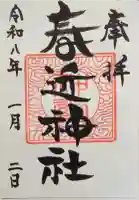 奉拝
春近神社
令和八年 一月 二日